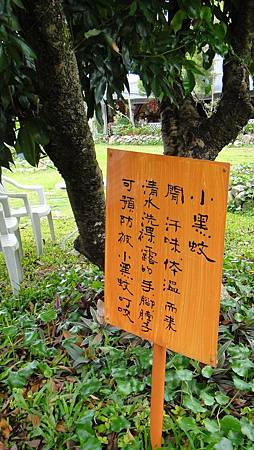 小黑蚊
聞汗味体溫而來
清水洗裸露的手腳脖子
可預防被小黑蚊叮咬